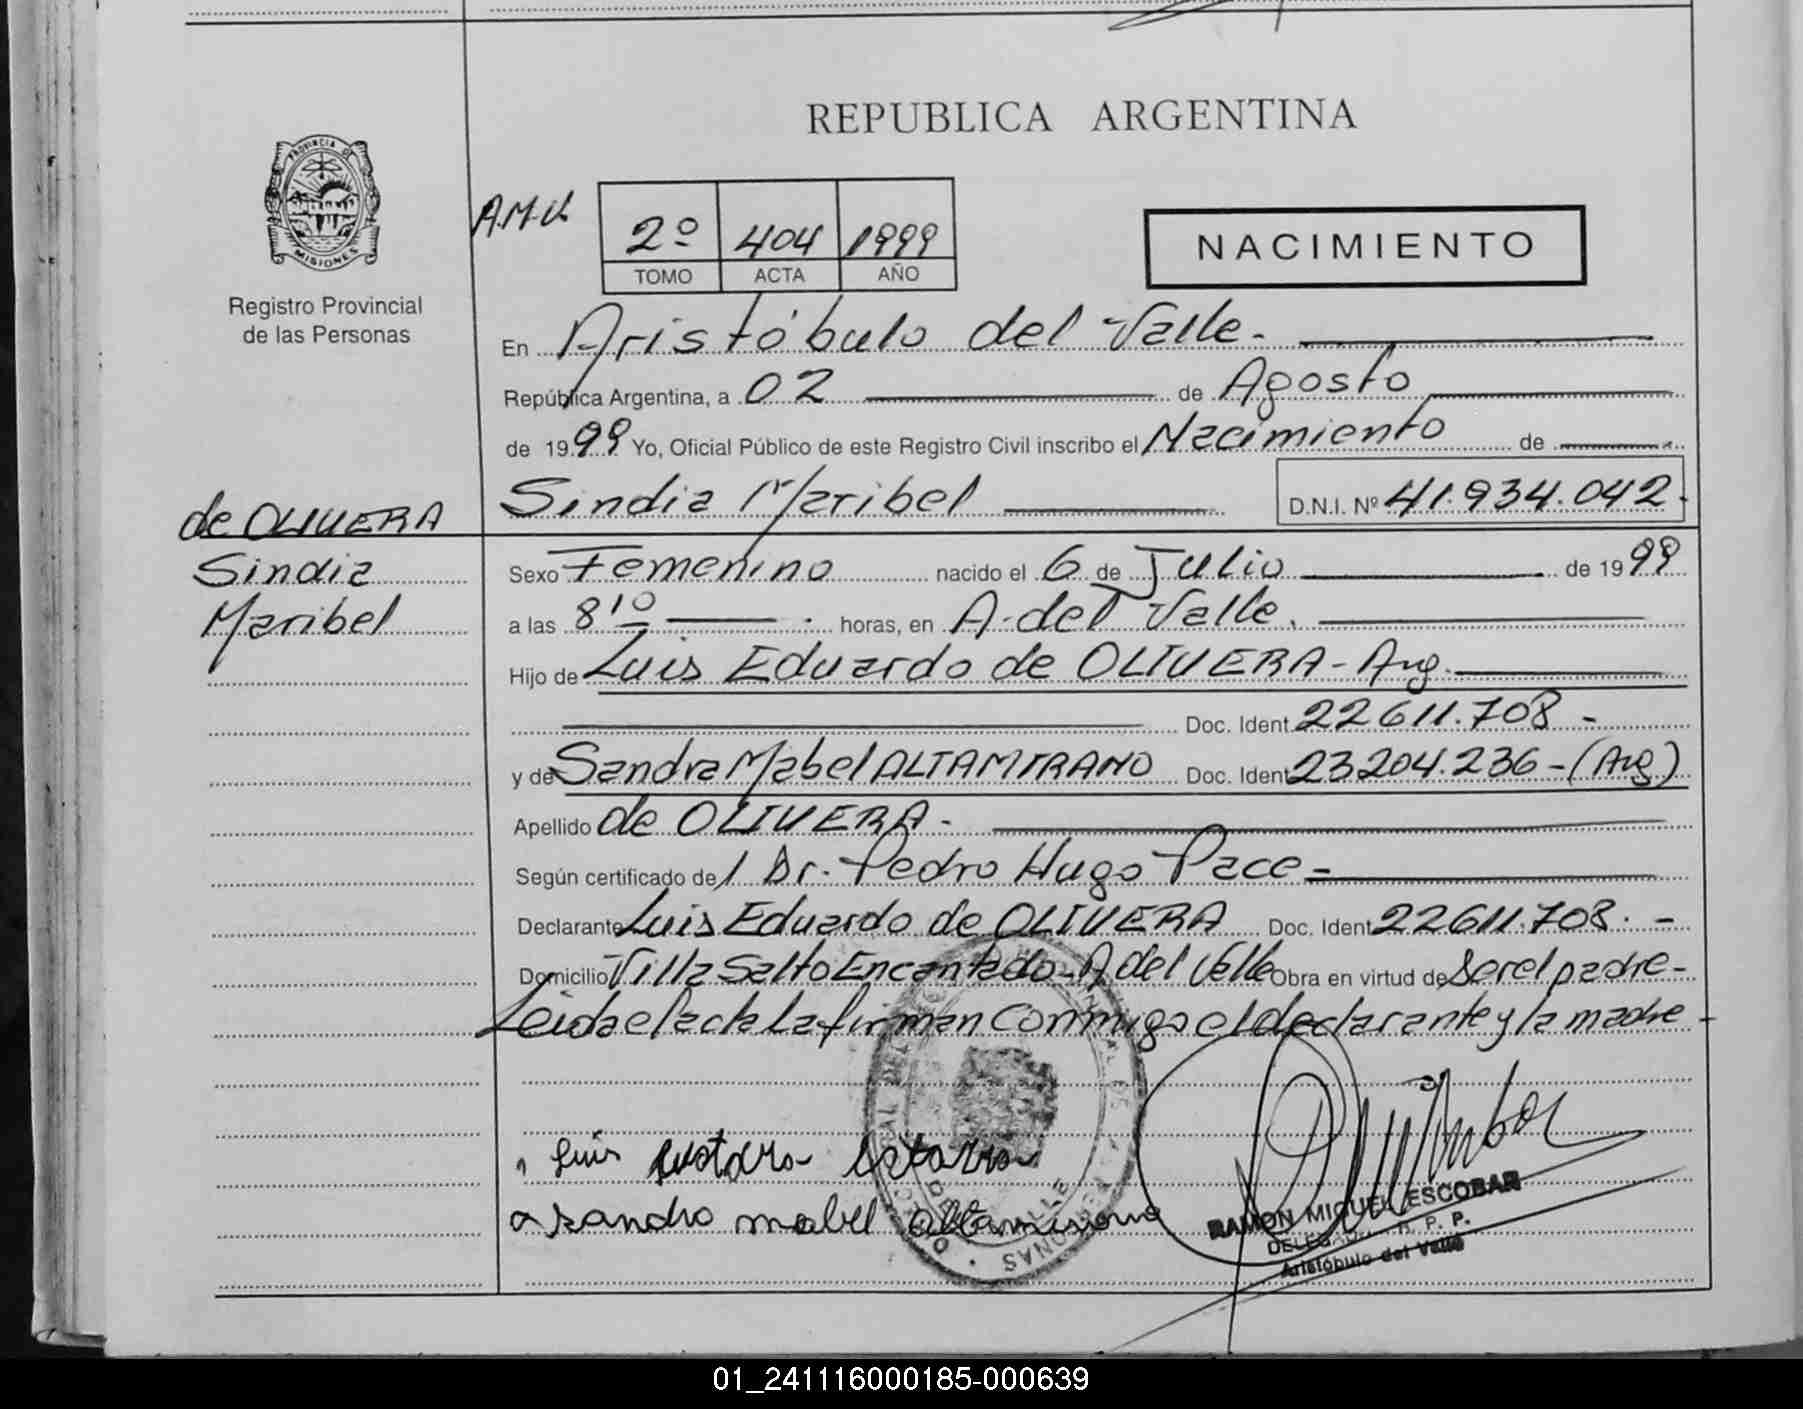 REPUBLICA ARGENTINA
PROVINCIA DE
MISIONES
Registro Provincial
de las Personas
A.M.V.
2º 404 1999
TOMO ACTA AÑO
NACIMIENTO
En Aristóbulo del Valle.
República Argentina, a 02 de Agosto
de 1999 Yo, Oficial Público de este Registro Civil inscribo el Nacimiento de
Sindia Maribel D.N.I. Nº 41.934.042.
de OLIVERA
Sindia
Maribel
Sexo Femenino nacido el 6 de Julio de 1999
a las 8 10 horas, en A. del Valle.
Hijo de Luis Eduardo de OLIVERA - Arg.
Doc. Ident 22611.708 -
y de Sandra Mabel ALTAMIRANO Doc. Ident 23204.236 - (Arg)
Apellido de OLIVERA -
Según certificado del Dr. Pedro Hugo Pace -
Declarante Luis Eduardo de OLIVERA Doc. Ident 22611.708. -
Domicilio Villa Salto Encantado - A del Valle Obra en virtud de Ser el padre -
Leida el acta la firman conmigo el declarante y la madre -
Luis
sandra mabel altamirano
RAMON MIGUEL ESCOBAR
R. P. P.
Aristóbulo del Valle
01_241116000185-000639